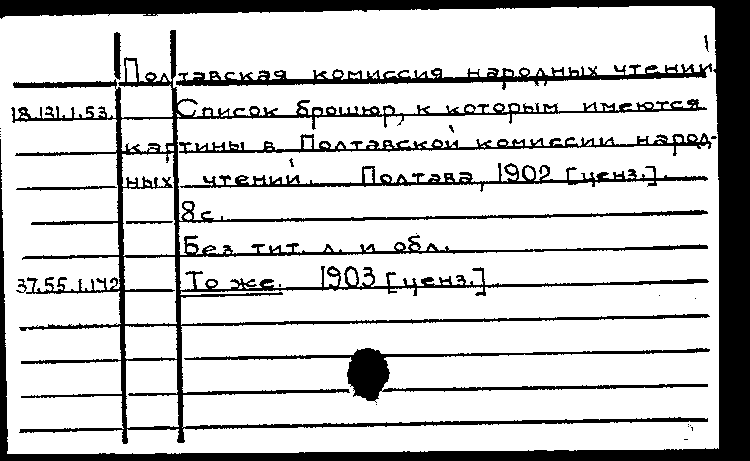 Полтавская комиссия народных чтений.
18.131.1.53. Список брошюр, к которым имеются
картины в Полтавской комиссии народ-
ных чтений. Полтава, 1902 [ценз.].
8с.
Без тит. л. и обл.
37.55.1.142 То же. 1903 [ценз.]